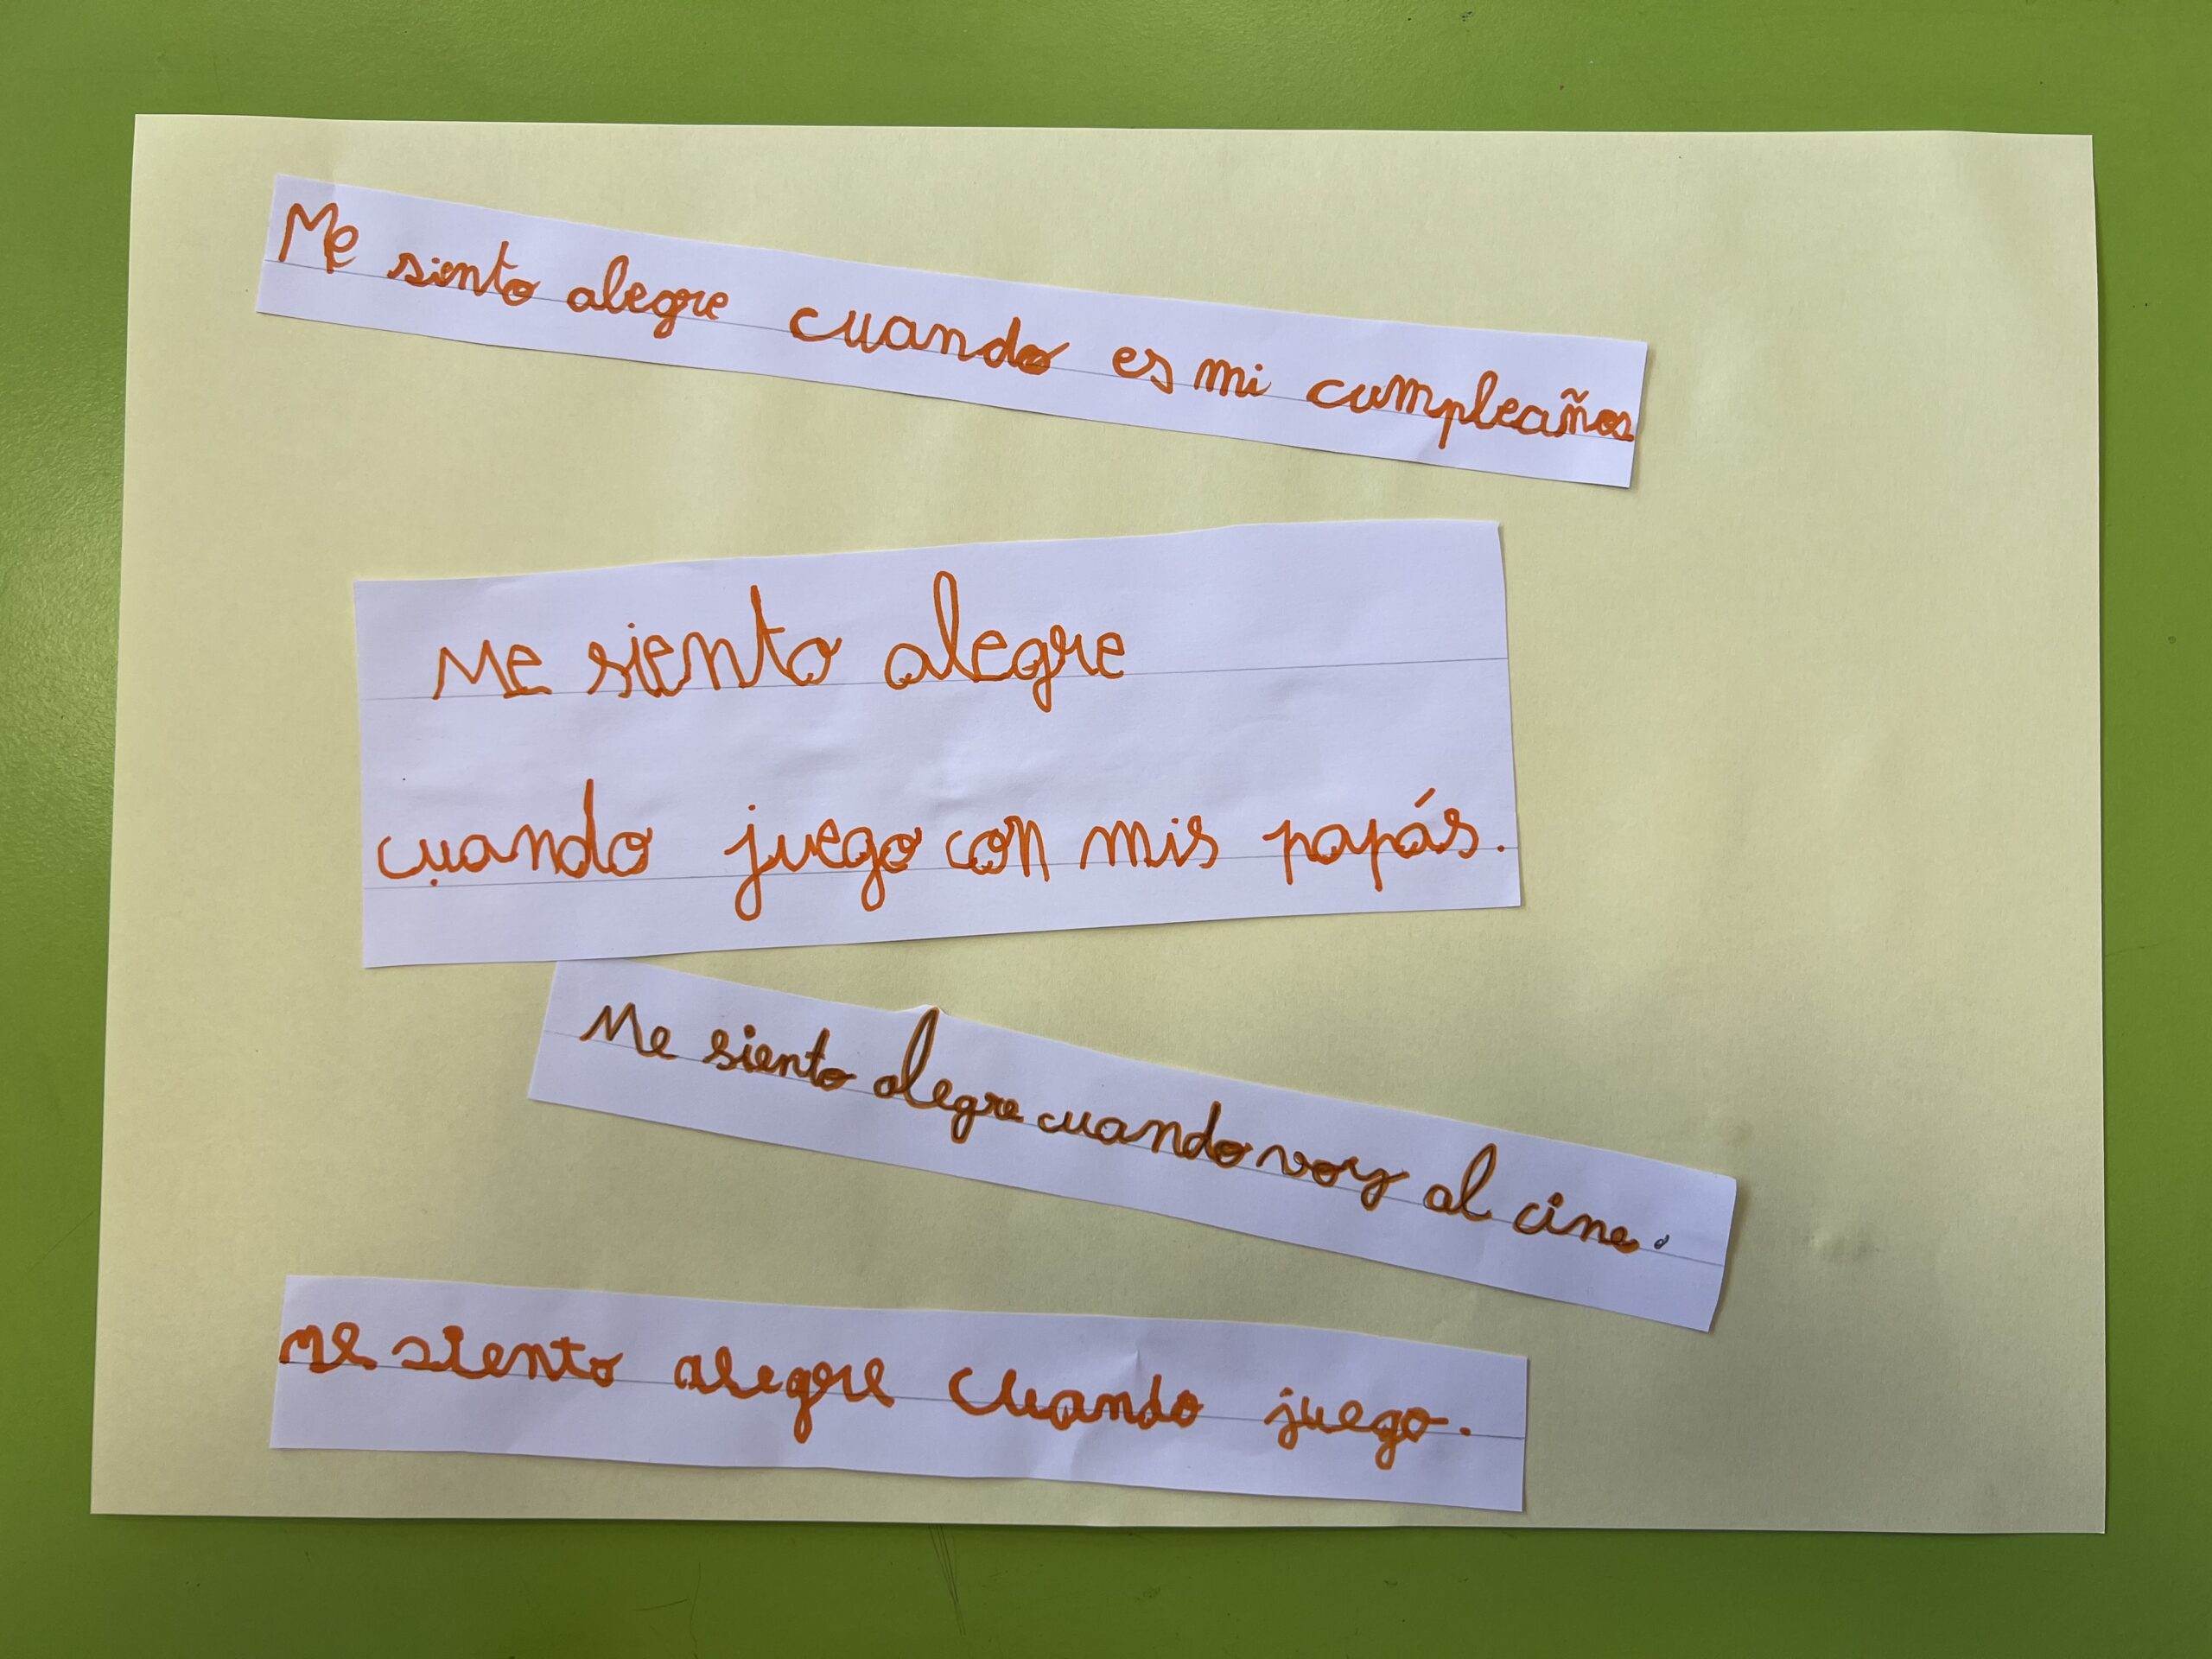 Me siento alegre cuando es mi cumpleaños
Me siento alegre
cuando juego con mis papás.
Me siento alegre cuando voy al cine.
Me siento alegre cuando juego.